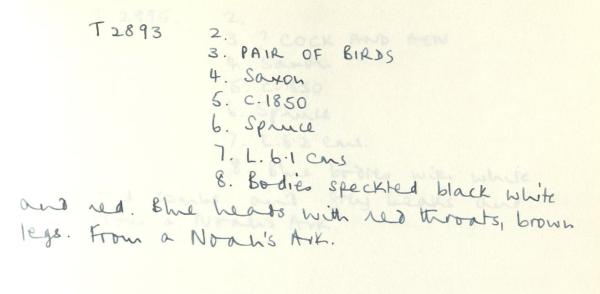 T2893 2.
3. PAIR OF BIRDS
4. Saxon
5. C.1850
6. Spruce
7. L. 6.1 cms
8. Bodies speckled black white
and red. Blue heads with red throats, brown
legs. From a Noah's Ark.